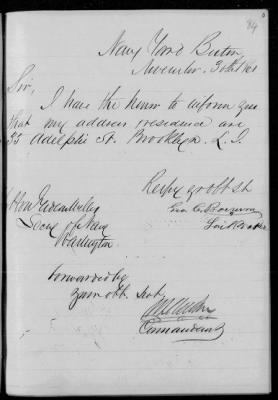 84
Navy Yard Boston
November 30th 1861
Sir,
I have the honor to inform you
that my address & residence are
35 Adelphi St. Brooklyn. L. I.
Respy yr obt St
Geo. C.
Hon Gideon Welles
Secy of Navy
Washington
Forwarded by
Your obt Servt
Commandant